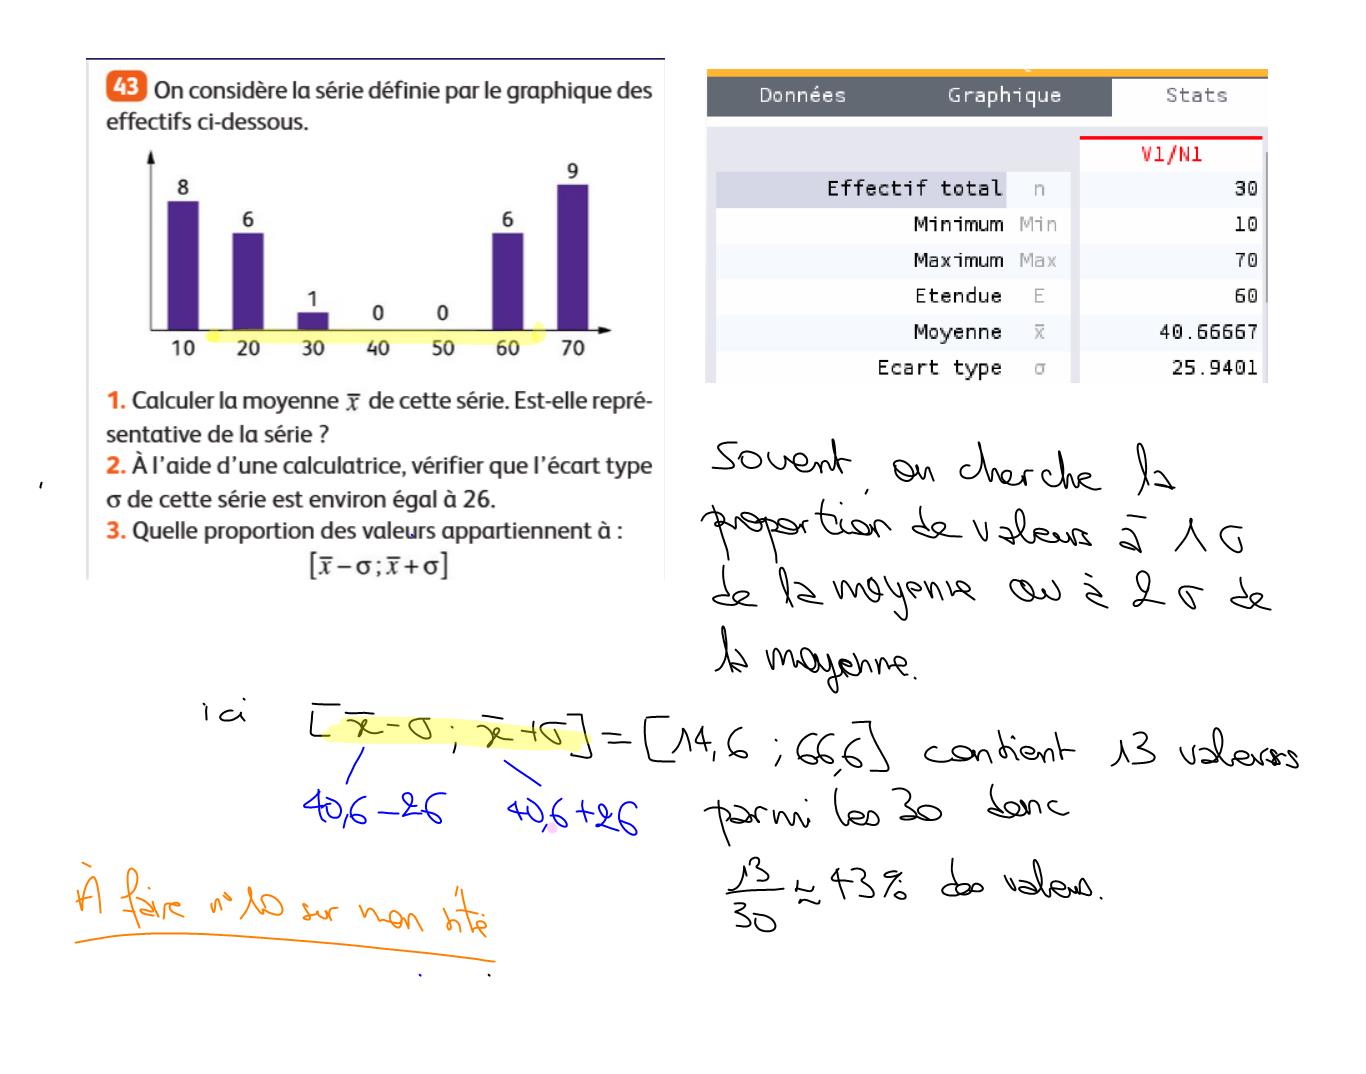 43 On considère la série définie par le graphique des
effectifs ci-dessous.
8 6 1 0 0 6 9
10 20 30 40 50 60 70
1. Calculer la moyenne x̅ de cette série. Est-elle repré-
sentative de la série ?
2. À l'aide d'une calculatrice, vérifier que l'écart type
σ de cette série est environ égal à 26.
3. Quelle proportion des valeurs appartiennent à :
[x̅ − σ ; x̅ + σ]
Données Graphique Stats
V1/N1
Effectif total n 30
Minimum Min 10
Maximum Max 70
Etendue E 60
Moyenne x̅ 40.66667
Ecart type σ 25.9401
Souvent, on cherche la
proportion de valeurs à 1 σ
de la moyenne ou à 2 σ de
la moyenne.
ici [x̅ − σ ; x̅ + σ] = [14,6 ; 66,6] contient 13 valeurs
40,6 − 26 40,6 + 26 parmi les 30 donc
13/30 ≈ 43% des valeurs.
À faire n°10 sur mon site